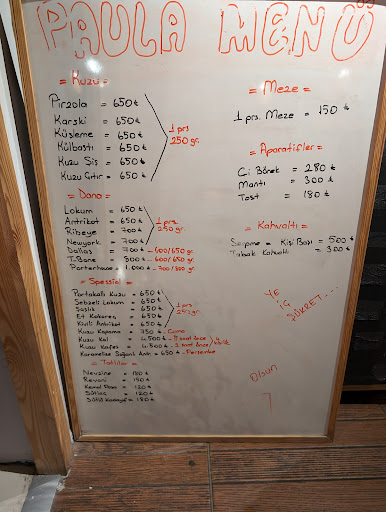 PAULA MENÜ
= Kuzu =
Pirzola = 650 ₺
Karski = 650 ₺
Küşleme = 650 ₺
Külbastı = 650 ₺
Kuzu Şiş = 650 ₺
Kuzu Çıtır = 650 ₺
1 prs
250 gr.
= Dana =
Lokum = 650 ₺
Antrikot = 650 ₺
Ribeye = 700 ₺
Newyork = 700 ₺
1 prs
250 gr.
Dallas = 700 ₺ - 600/650 gr.
T.Bone = 800 ₺ - 600/650 gr.
Porterhouse = 1.000 ₺ - 700/800 gr.
= Spessial =
Portakallı Kuzu = 650 ₺
Sebzeli Lokum = 650 ₺
Saşlık = 650 ₺
Et Kokoreç = 650 ₺
Kivili Antrikot = 650 ₺
1 prs
250 gr.
Kuzu Kapama = 750 ₺ - Cuma
Kuzu Kol = 4.500 ₺
Kuzu Kafes = 4.500 ₺ - 2 saat önce
Karamelize Soğanlı Antr. = 650 ₺ - Perşembe
= Tatlılar =
Nevzine = 150 ₺
Revani = 150 ₺
Kemal Paşa = 120 ₺
Sütlaç = 120 ₺
Sütlü Kadayıf = 180 ₺
= Meze =
1 prs. Meze = 150 ₺
= Aparatifler =
Çi Börek = 280 ₺
Mantı = 300 ₺
Tost = 180 ₺
= Kahvaltı =
Serpme = Kişi Başı = 500 ₺
Tabak Kahvaltı = 300 ₺
YE
İÇ
ŞÜKRET....
Olsun